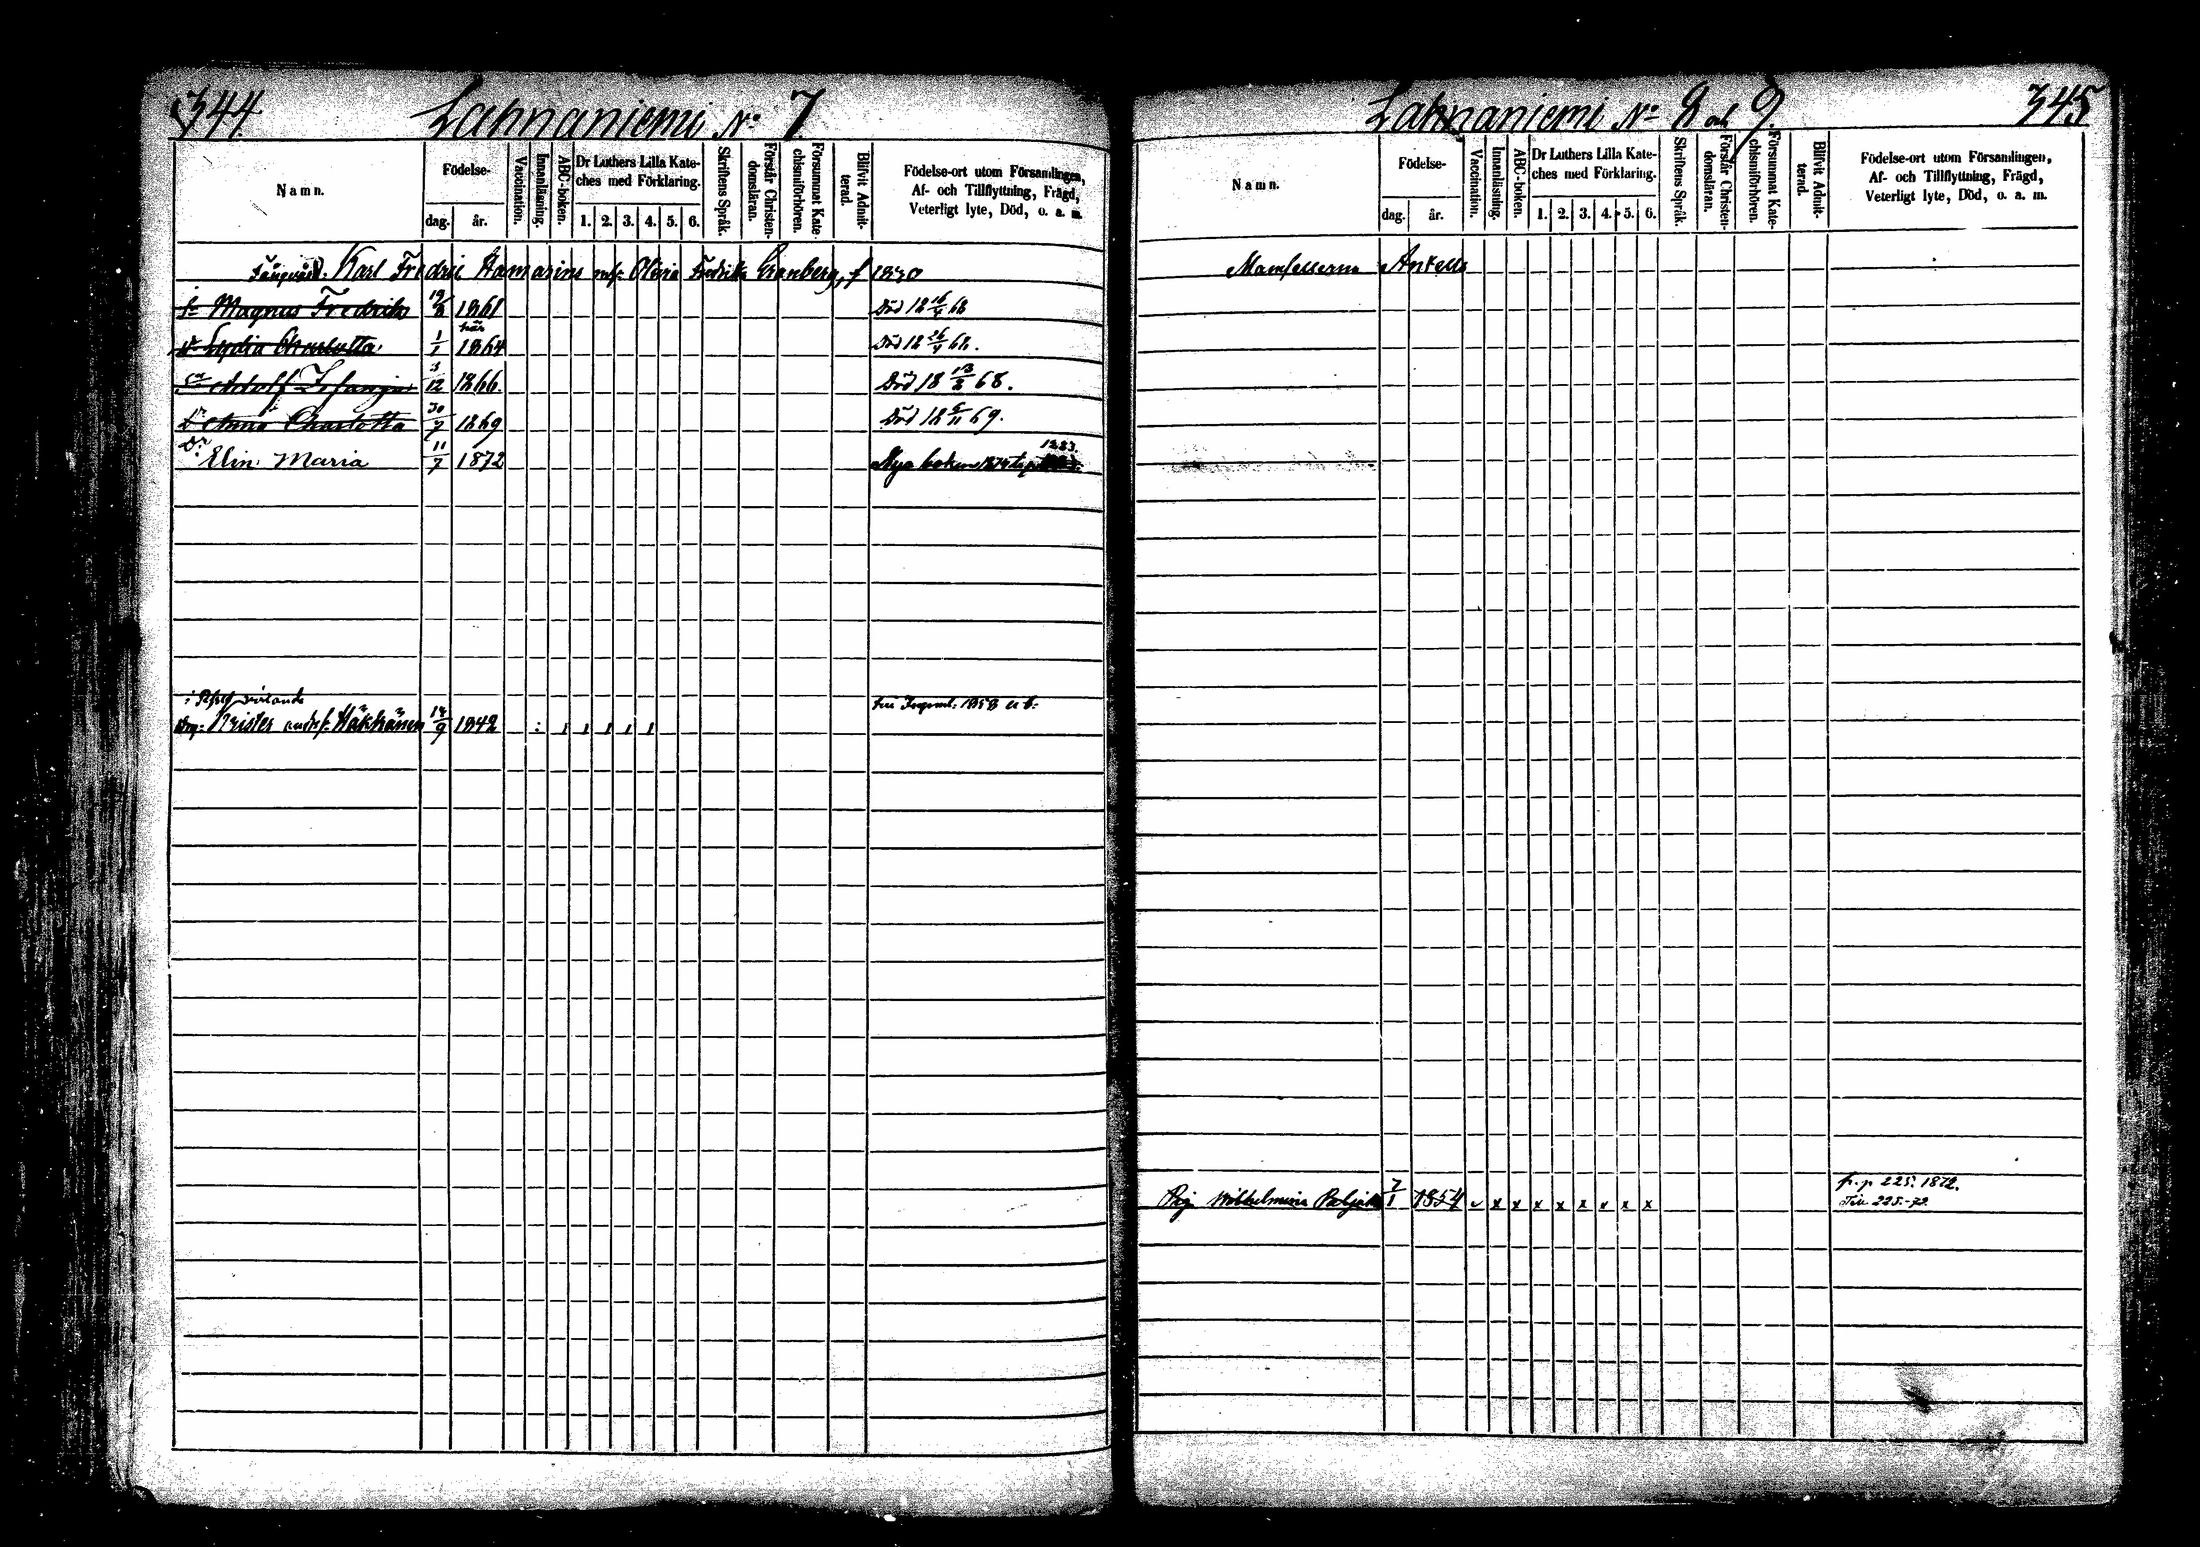 344.
Lahnaniemi No 7.
Namn.
Födelse-
dag.
år.
Vaccination.
Innanläsning.
ABC-boken.
Dr Luthers Lilla Kate-
ches med Förklaring.
1. 2. 3. 4. 5. 6.
Skriftens Språk.
Förstår Christen-
domsläran.
Försummat Kate-
chismiförhören.
Blifvit Admit-
terad.
Födelse-ort utom Församlingen,
Af- och Tillflyttning, Frägd,
Veterligt lyte, Död, o. a. m.
Karl Fredric Hamarins Fredrika Granberg, f 1830
Sn Magnus Fredrik 1861 Död 18 68
Dr Lydia Charlotta 1/1 1864 Död 18 68.
Sn Adolf 5/12 1866. Död 18 13/2 68.
Dr Anna Charlotta 30/7 1869 Död 18 5/11 69.
Dr Elin Maria 11/7 1872 Nya boken 1883.
Krister Häkkänen 1842 , , , , ,
1858
Lahnaniemi No 8 och 9.
345
Namn.
Födelse-
dag.
år.
Vaccination.
Innanläsning.
ABC-boken.
Dr Luthers Lilla Kate-
ches med Förklaring.
1. 2. 3. 4. 5. 6.
Skriftens Språk.
Förstår Christen-
domsläran.
Försummat Kate-
chismiförhören.
Blifvit Admit-
terad.
Födelse-ort utom Församlingen,
Af- och Tillflyttning, Frägd,
Veterligt lyte, Död, o. a. m.
Mamsellerna Antell
fr. p 225. 1872.
Pig. Wilhelmina 7/1 1854 x x x x x x x x Till 225.-72.